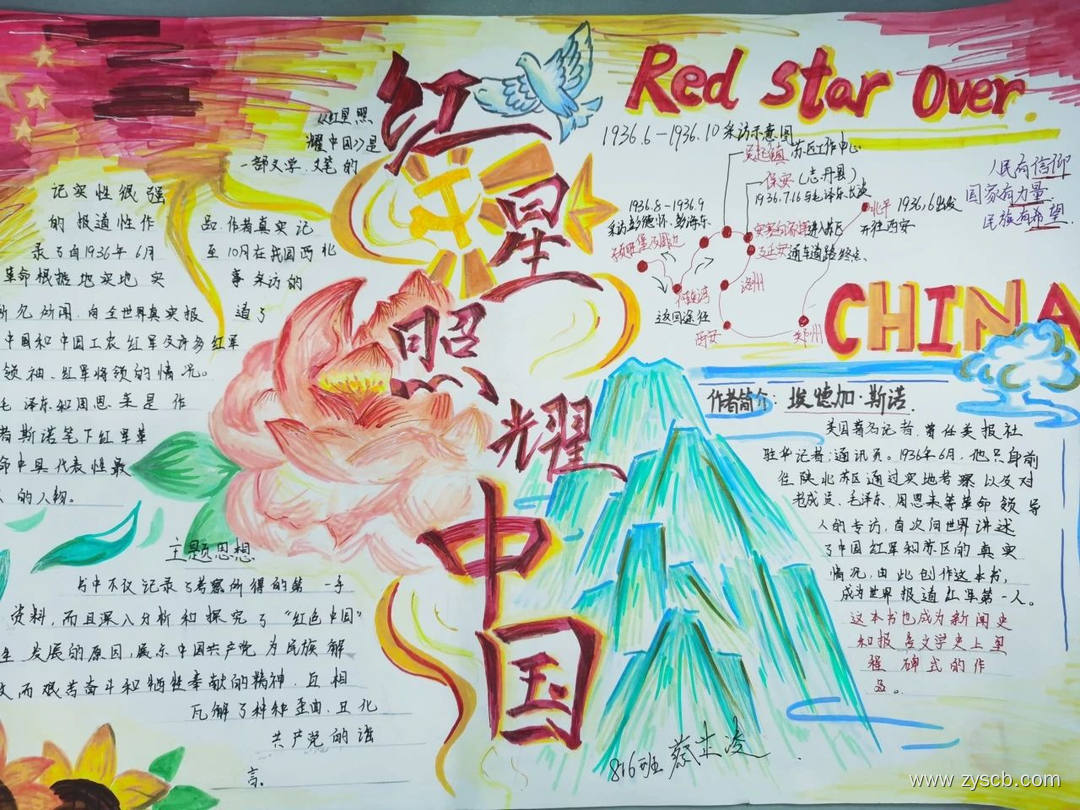 红星照耀中国
Red star Over
CHINA
《红星照
耀中国》是
一部文学、文笔的
记实性很强
的报道性作
品.作者真实记
录了自1936年6月
至10月在我国西北
革命根据地实地实
事采访的
所见所闻,向全世界真实报道了
中国和中国工农红军及许多红军
领袖、红军将领的情况。
毛泽东和周恩来是作
者斯诺笔下红军革
命中具代表性最
的人物。
主题思想
书中不仅记录了考察所得的第一手
资料,而且深入分析和探究了“红色中国”
发展的原因,展示中国共产党为民族解
放,而艰苦奋斗和牺牲奉献的精神.且相
瓦解了种种歪曲.丑化
共产党的谣
言。
1936.6-1936.10采访示意图
吴起镇 苏区工作中心
保安(志丹县)
1936.7.16与毛泽东长谈
1936.8-1936.9
采访彭德怀、彭海东
北平 1936.6出发
开往西安
进入苏区
延安 通车道路终点
洛川
返回途径
西安
郑州
人民有信仰
国家有力量
民族有希望.
作者简介: 埃德加·斯诺.
美国著名记者.曾任美报社
驻华记者、通讯员。1936年6月,他只身前
往陕北苏区通过实地考察以及对
老成员、毛泽东、周恩来等革命领导
人的专访,首次向世界讲述
了中国红军和苏区的真实
情况,由此创作这本书,
成为世界报道红军第一人。
这本书也成为新闻史
和报告文学史上里
程碑式的作
品。
816班
www.zyscb.com